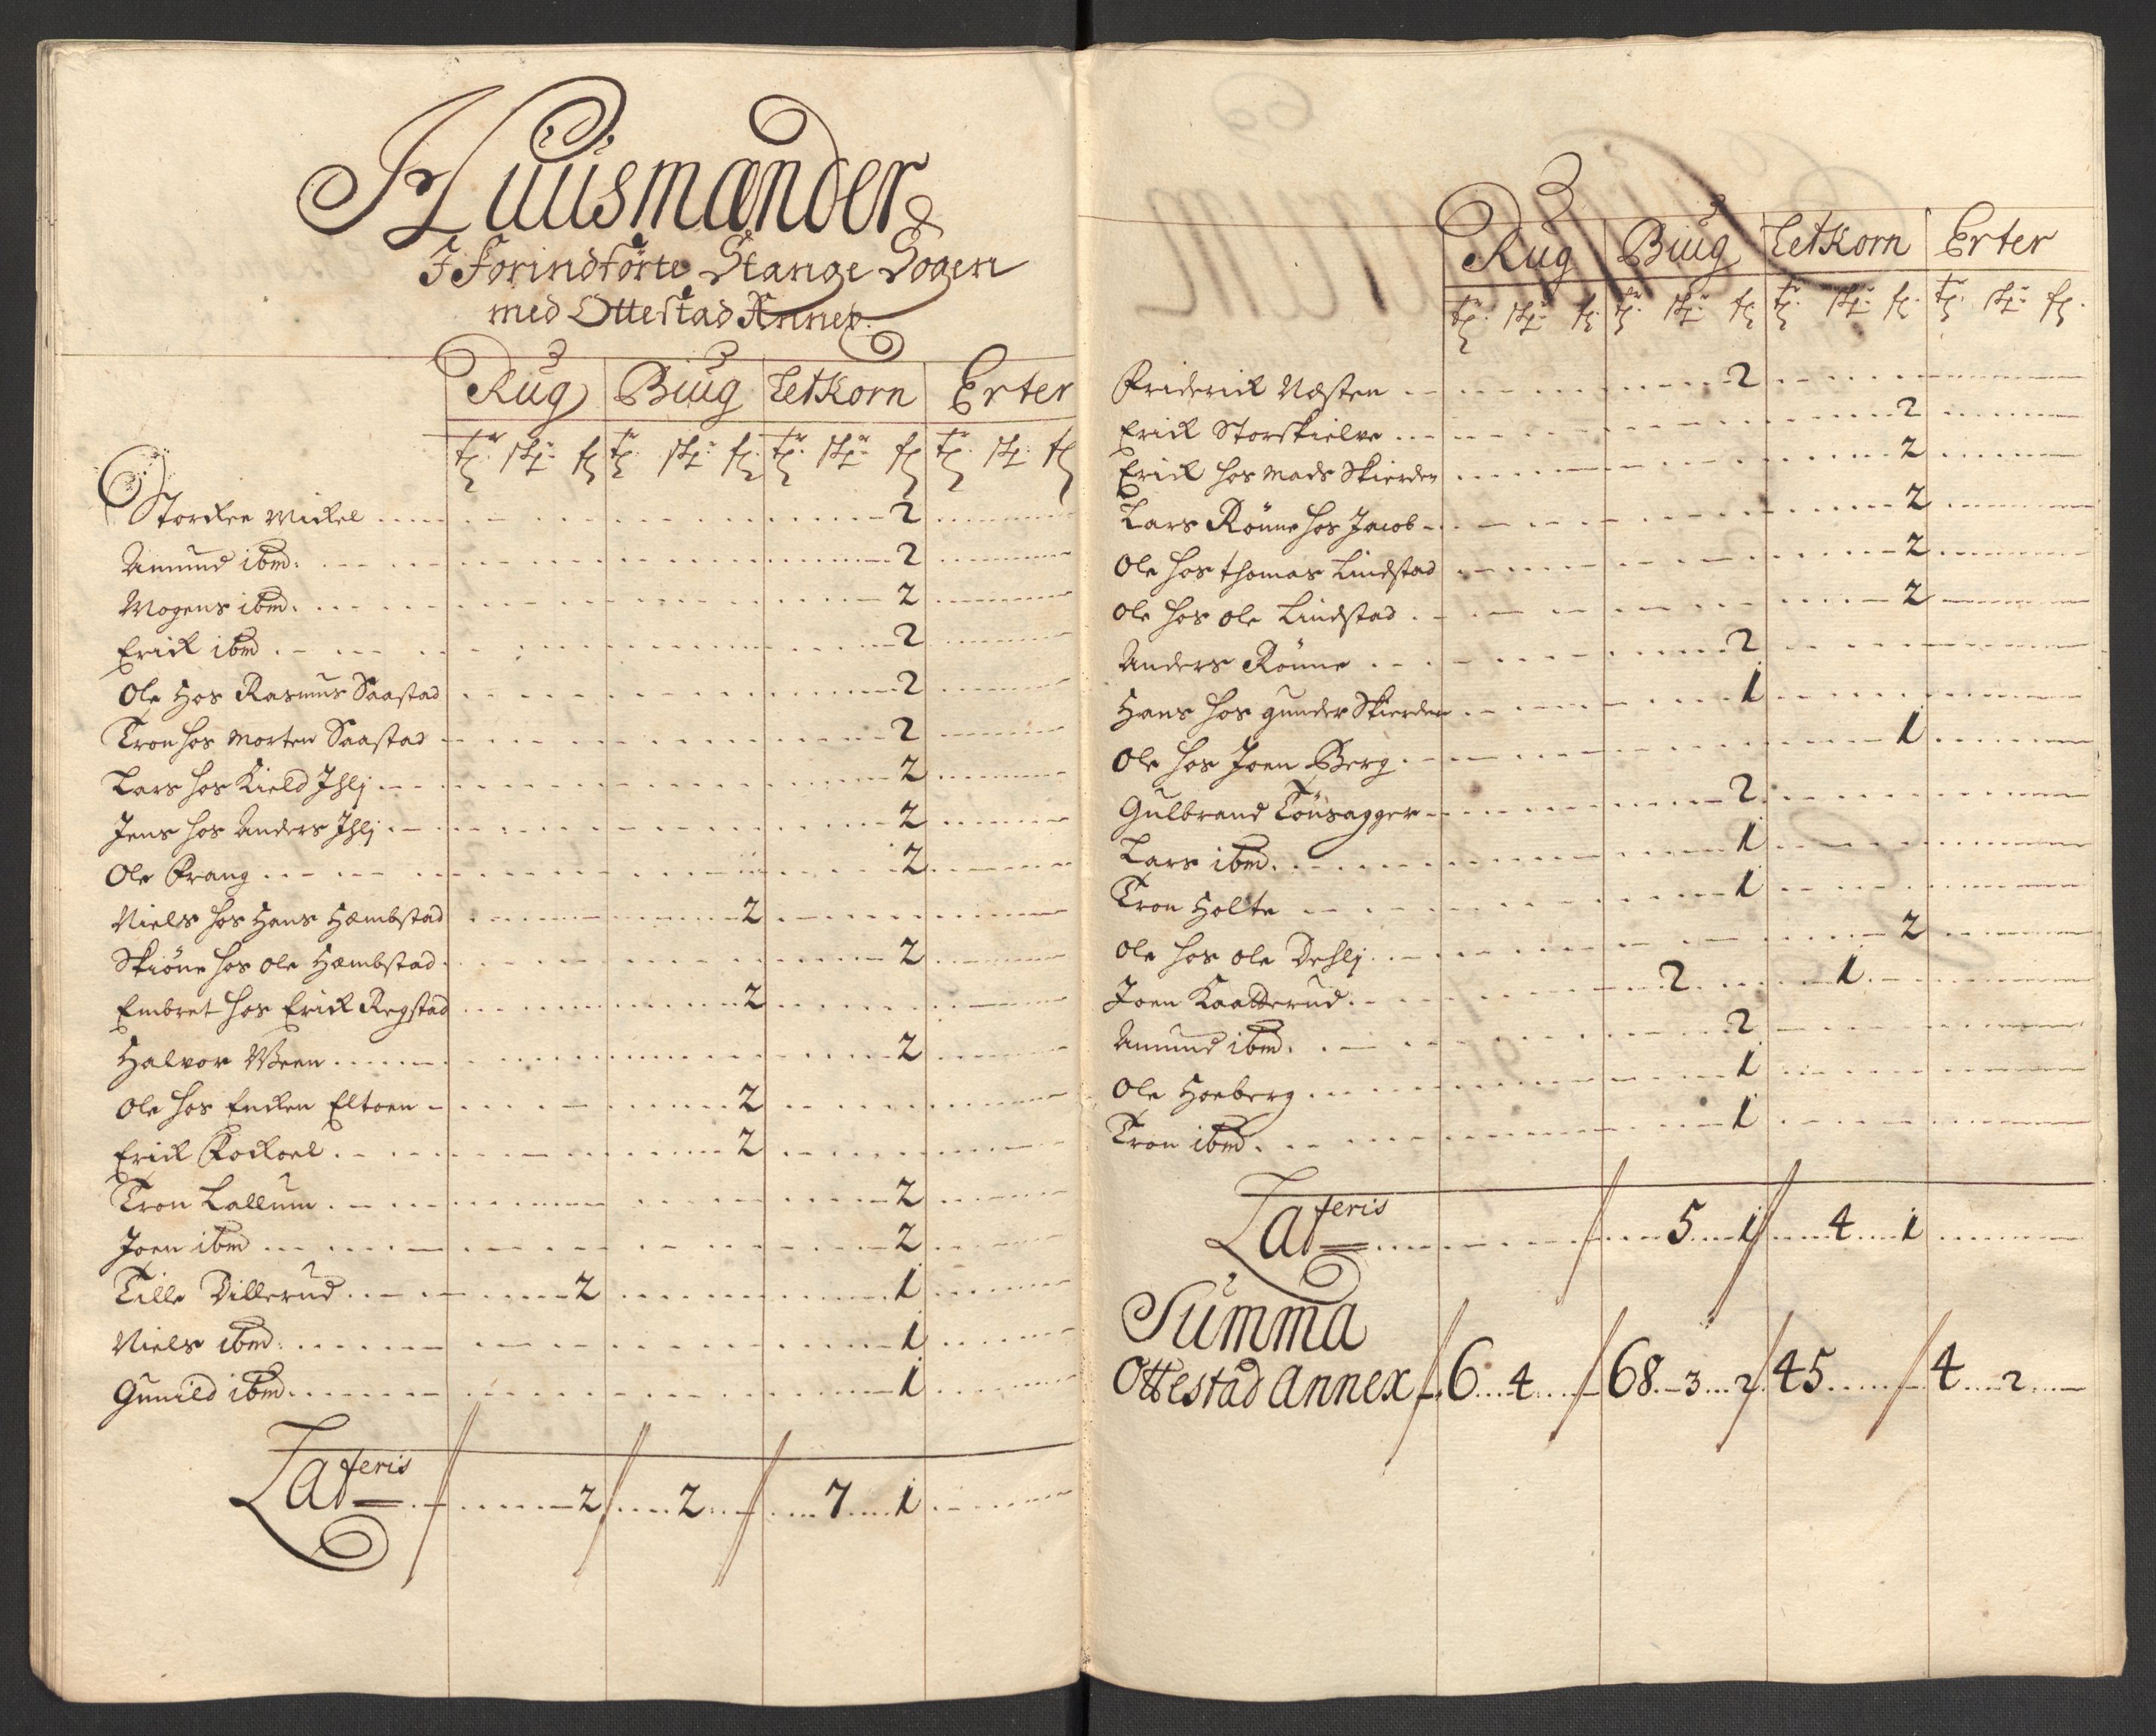 Huusmænder
I Forindførte Stange Sogen
med Ottestad Annex.
Rug Biug Letkorn Erter
tr. skp. fr. tr. skp. fr. tr. skp. fr. tr. skp. fr.
Storcken Mickel 2
Amund ibm. 2
Mogens ibm. 2
Erick ibm 2
Ole Hos Rasmus Saastad 2
Tron hos Morten Saastad 2
Lars hos Kield Ihlj 2
Jens hos Anders Ihlj 2
Ole Prang 2
Niels hos Hans Hæmbstad 2
Skiöne hos Ole Hæmbstad 2
Embret hos Erick Regstad 2
Halvor Ween 2
Ole hos Encken Eltoen 2
Erick Rockoel 2
Tron Lallum 2
Joen ibm 2
Tille Dillerud 2 1
Niels ibm. 1
Gunild ibm. 1
Lateris 2 2 7 1
Rug Biug Letkorn Erter
tr. skp. fr. tr. skp. fr. tr. skp. fr. tr. skp. fr.
Friderick Næsten 2
Erick Storskielve 2
Erick hos Mads Skierden 2
Lars Rönne hos Jacob 2
Ole hos Thomas Lindstad 2
Ole hos Ole Lindstad 2
Anders Rönne 2
Hans hos Gunder Skierden 1
Ole hos Joen Berg 1
Gulbrand Tönsagger 2
Lars ibm. 1
Tron Holte 1
Ole hos Ole Dehlj 2
Joen Kaatterud 2 1
Amund ibm. 2
Ole Hoeberg 1
Tron ibm. 1
Lateris 5 1 4 1
Summa
Ottestad Annex 6 4 68 3 2 45 4 2